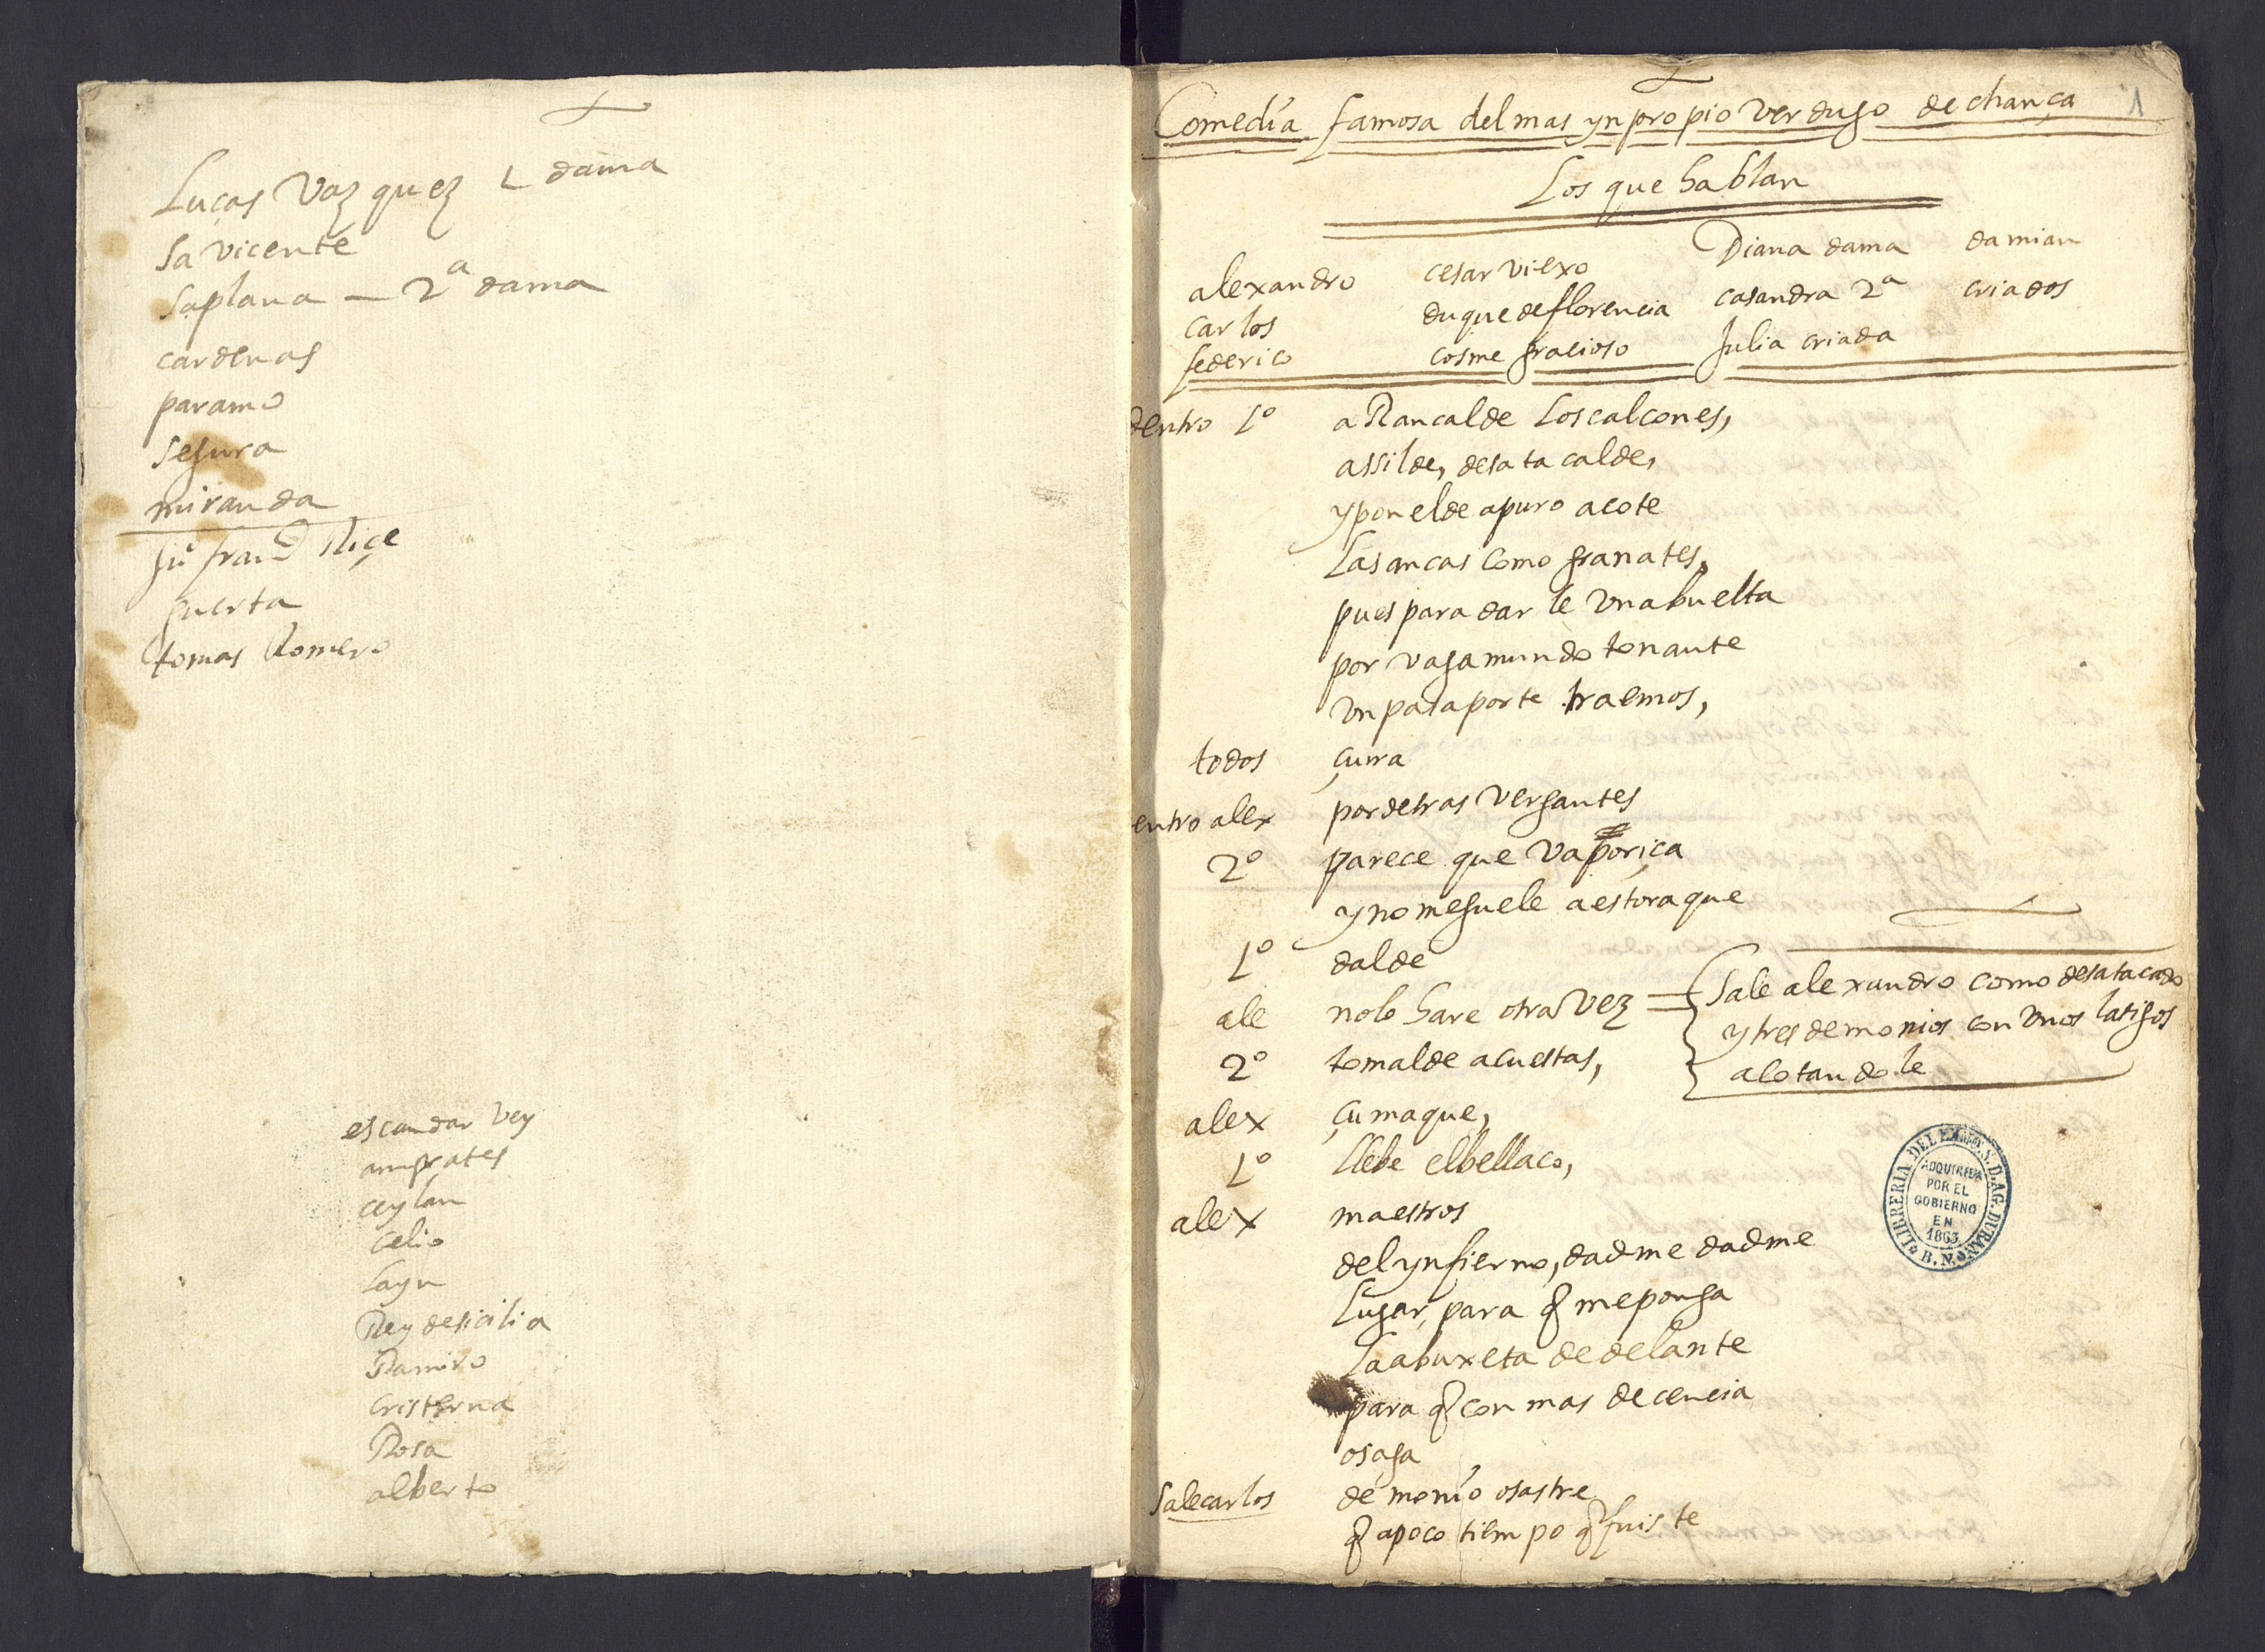 Lucas Vazquez 1 dama
Sa vicente
Saplana — 2ª dama
cardenas
paramo
Segura
miranda
Juº franᶜᵒ Riçe
huerta
tomas Romero
escandar vey
amurates
ceylan
celio
layn
Rey desicilia
Ramiro
cristerna
Rosa
alberto
1
Comedia famosa del mas ynpropio verdugo de chança
Los que hablan
alexandro cesar viexo Diana dama damian
carlos duque de florencia casandra 2ª criados
federico cosme gracioso Julia criada
dentro 1º aRancalde los calcones,
assilde, desatacalde,
y ponelde a puro acote
las ancas como granates,
pues para darle una buelta
por vagamundo tonante
un pasaporte traemos,
todos çurra
entro alex por detras vergantes
2º parece que vaporiça
y no me guele a estoraque
1º dalde
ale no lo hare otra vez
Sale alexandro como desatacado
y tres demonios con unos latigos
acotandole
2º tomalde acuestas,
alex çumaque,
1º llebe el bellaco,
alex maestros
del ynfierno, dadme dadme
lugar, para q me ponga
la abuxeta de delante
para q con mas decencia
os aga
Sale carlos demonio o sastre
q a poco tiempo q fuiste
LIBRERIA DEL EXMO. S. D. AG. DURAN
ADQUIRIDA
POR EL
GOBIERNO
EN
1863
B. N.